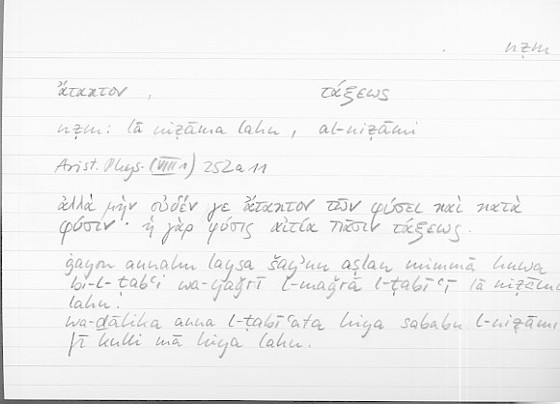 nẓm
ἄτακτον , τάξεως
nẓm: lā niẓāma lahu , al-niẓāmi
Arist. Phys. (VIII 1) 252 a 11
ἀλλὰ μὴν οὐδέν γε ἄτακτον τῶν φύσει καὶ κατὰ
φύσιν · ἡ γὰρ φύσις αἰτία πᾶσιν τάξεως.
ġayra annahu laysa šayʾun aṣlan mimmā huwa
bi-l-ṭabʿi wa-yaǧrī l-maǧrā l-ṭabīʿī lā niẓāma
lahu.
wa-ḏālika anna l-ṭabīʿata hiya sababu l-niẓāmi
fī kulli mā hiya lahu.